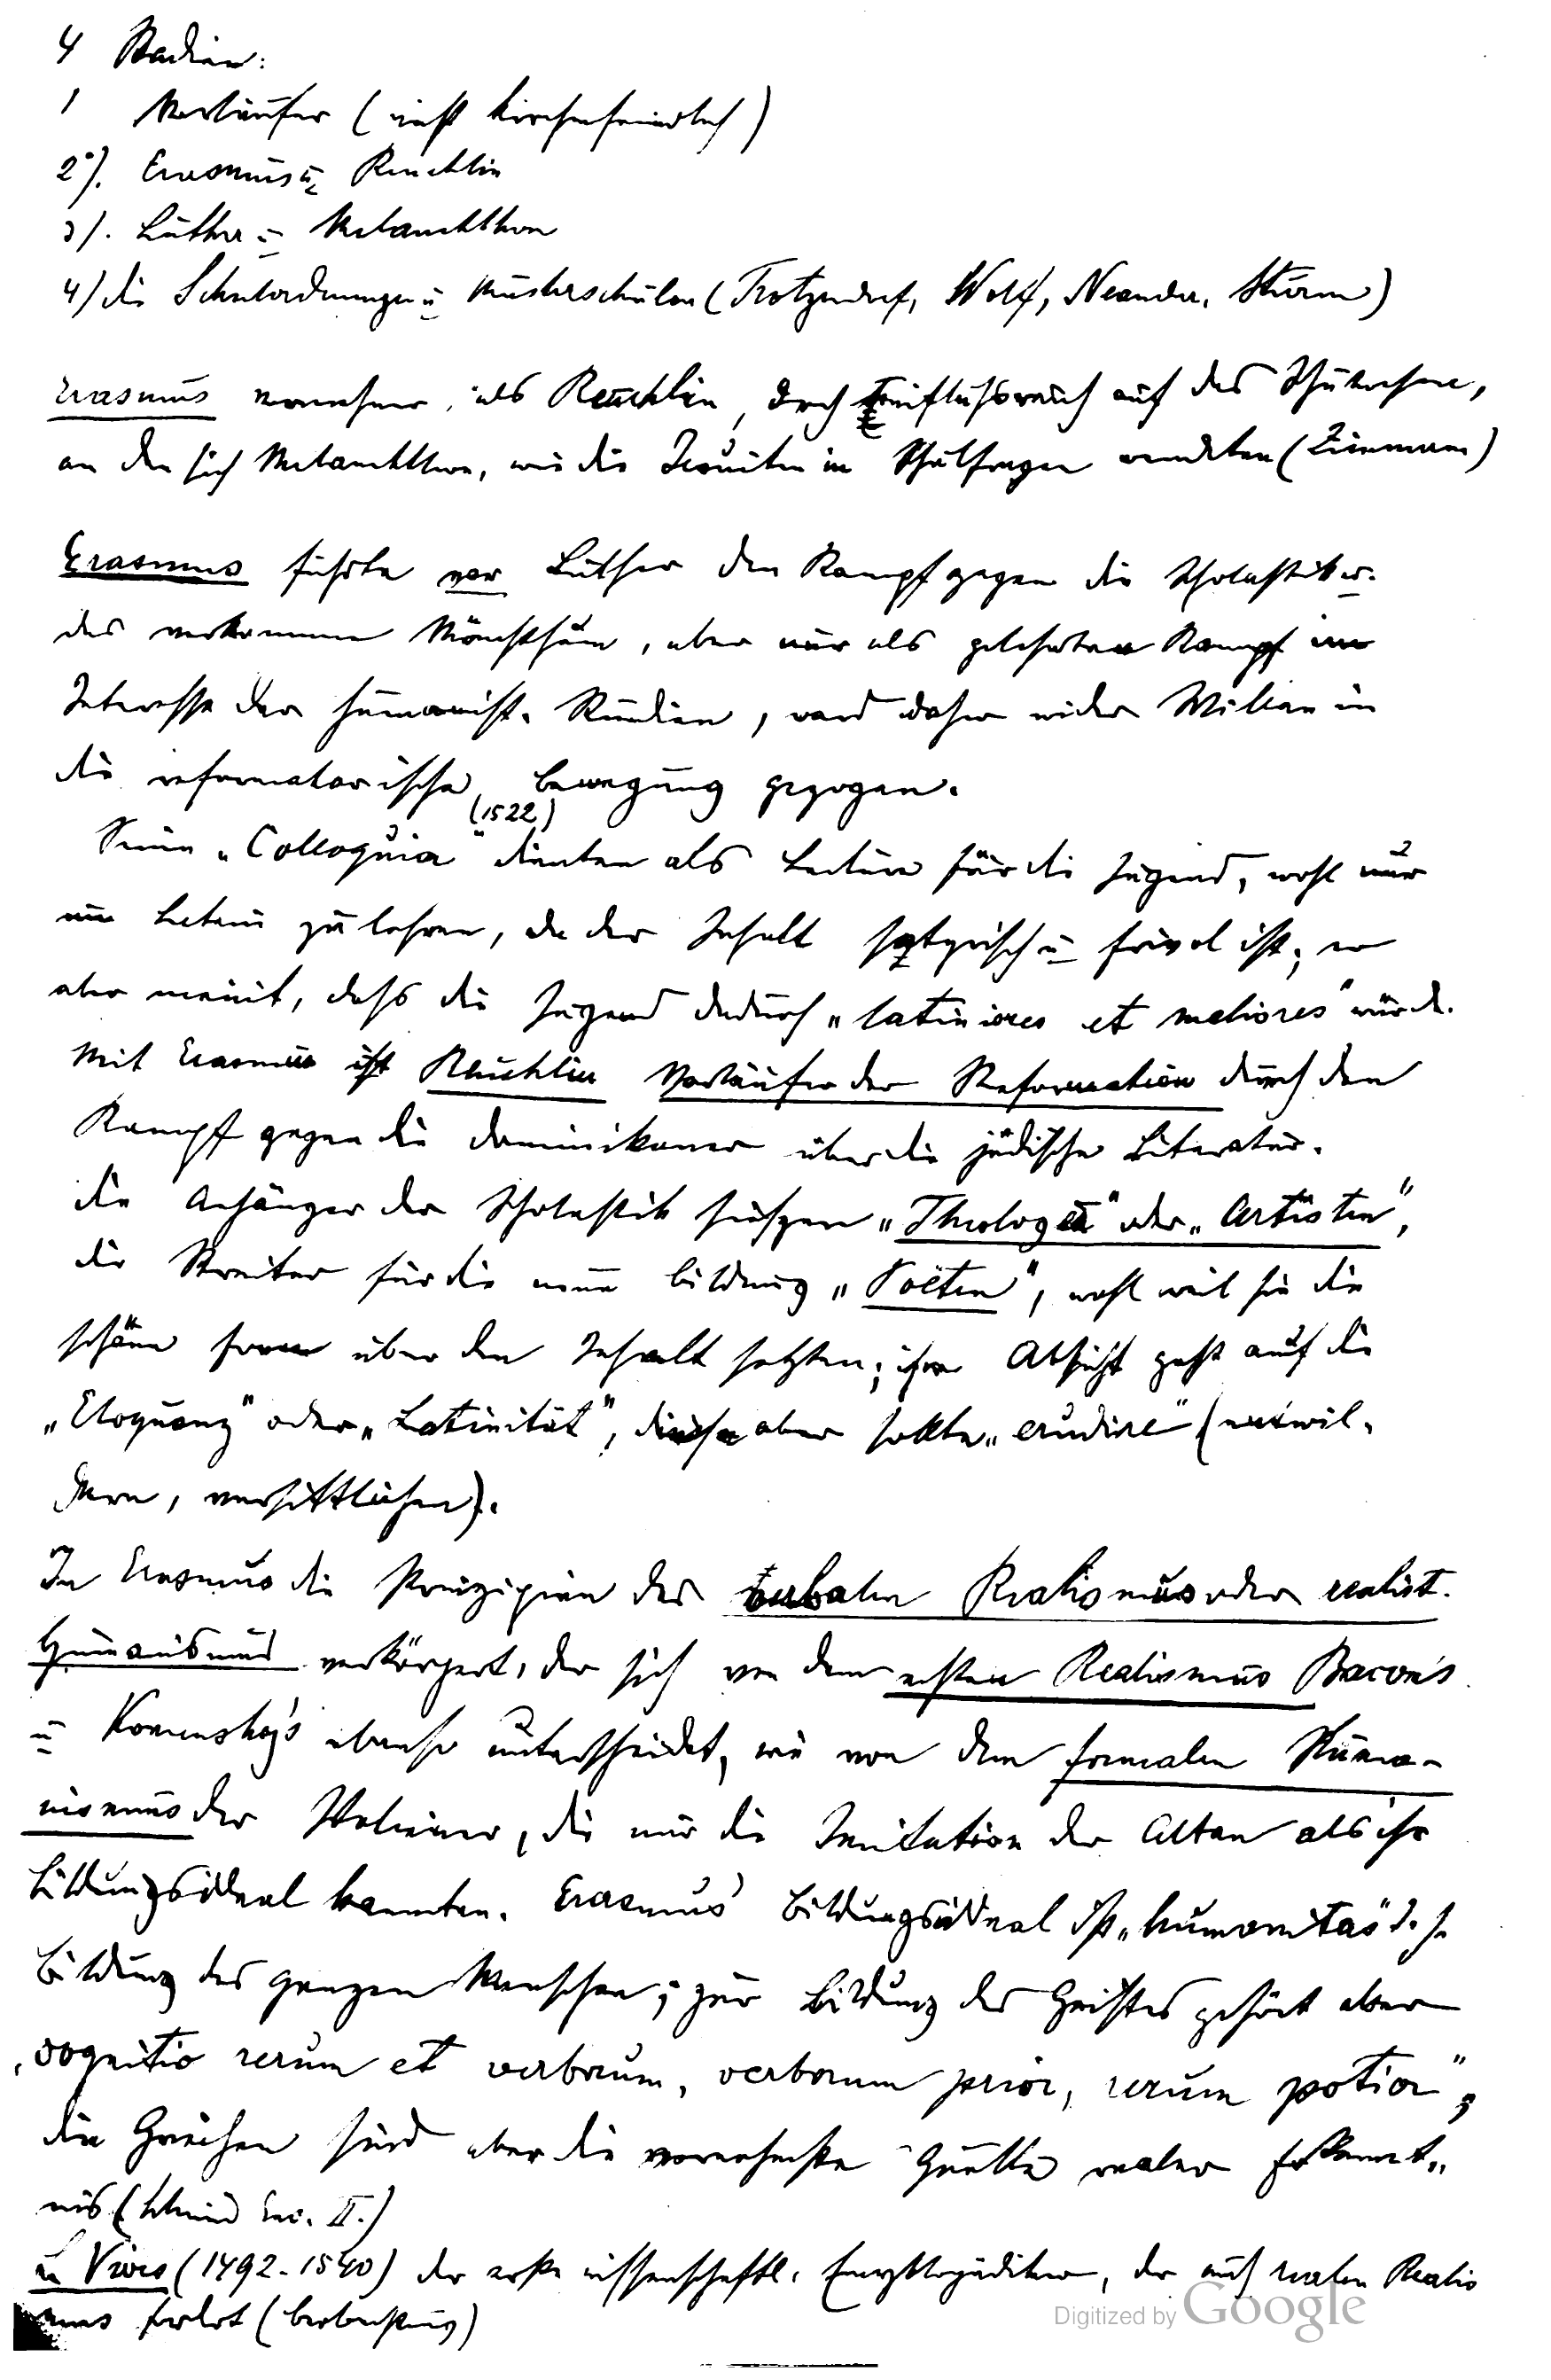 4 Stadien:
1 Vorläufer (nicht kirchenfeindlich)
2). Erasmus u. Reuchlin
3). Luther u. Melanchthon
4) die Schulordnungen u. Musterschulen (Trotzendorf, Wolf, Neander, Sturm)
Erasmus vornehmer als Reuchlin, doch einflußreich auf das Schulwesen,
an den sich Melanchthon, wie die Jesuiten in Schulfragen wendeten
Erasmus führte vor Luther den Kampf gegen die Scholastik u.
das verkommene Mönchthum, aber nur als gelehrten Kampf im
Interesse der humanist. Studien, ward daher wider Willen in
die reformatorische Bewegung gezogen.
(1522)
Seine „Colloquia" dienten als Lectüre für die Jugend, wohl nur
um Latein zu lehren, da der Inhalt satyrisch u. frivol ist; er
aber meint, daß die Jugend dadurch „latiniores et meliores" würde.
Mit Erasmus ist Reuchlin Vorläufer der Reformation durch den
Kampf gegen die Dominikaner über die jüdische Literatur.
die Anhänger der Scholastik hießen „Theologen" oder „Artisten",
die Streiter für die neue Bildung „Poëten", wohl weil sie die
schöne Form über den Inhalt setzten; ihre Absicht geht auf die
„Eloquenz" oder „Latinität", diese aber sollte „erudire" (entwil-
dern, versittlichen).
In Erasmus die Prinzipien des verbalen Realismus oder realist.
Humanismus verkörpert, der sich von dem ersten Realismus Bacon's
u. Komensky's ebenso unterscheidet, wie von dem formalen Huma-
nismus der Italiener, die nur die Imitation der Alten als ihr
Bildungsideal kannten. Erasmus' Bildungsideal ist „humanitas" d. h.
Bildung des ganzen Menschen; zur Bildung des Geistes gehört aber
„cognitio rerum et verborum, verborum prior, rerum potior";
die Griechen sind aber die vornehmste Quelle realer Erkennt-
nis (Schmid Enc. II.)
Vives (1492-1540) der erste wissenschaftl. Encyklopädiker, der auch realen Realis
mus fordert (Beobachtung)
Digitized by Google